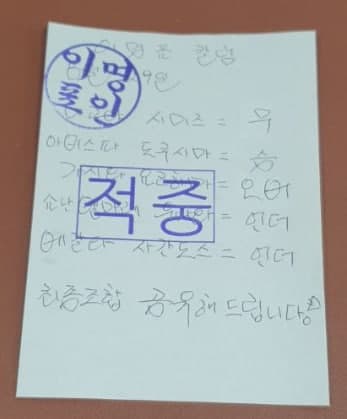 이명품인
이명품 칼럼
시미즈 = 무
아비스파 도쿠시마 = 승
가시와 요코하마 = 오버
적중
쇼난 = 언더
베갈타 사간도스 = 언더
최종조합 공유해드립니다